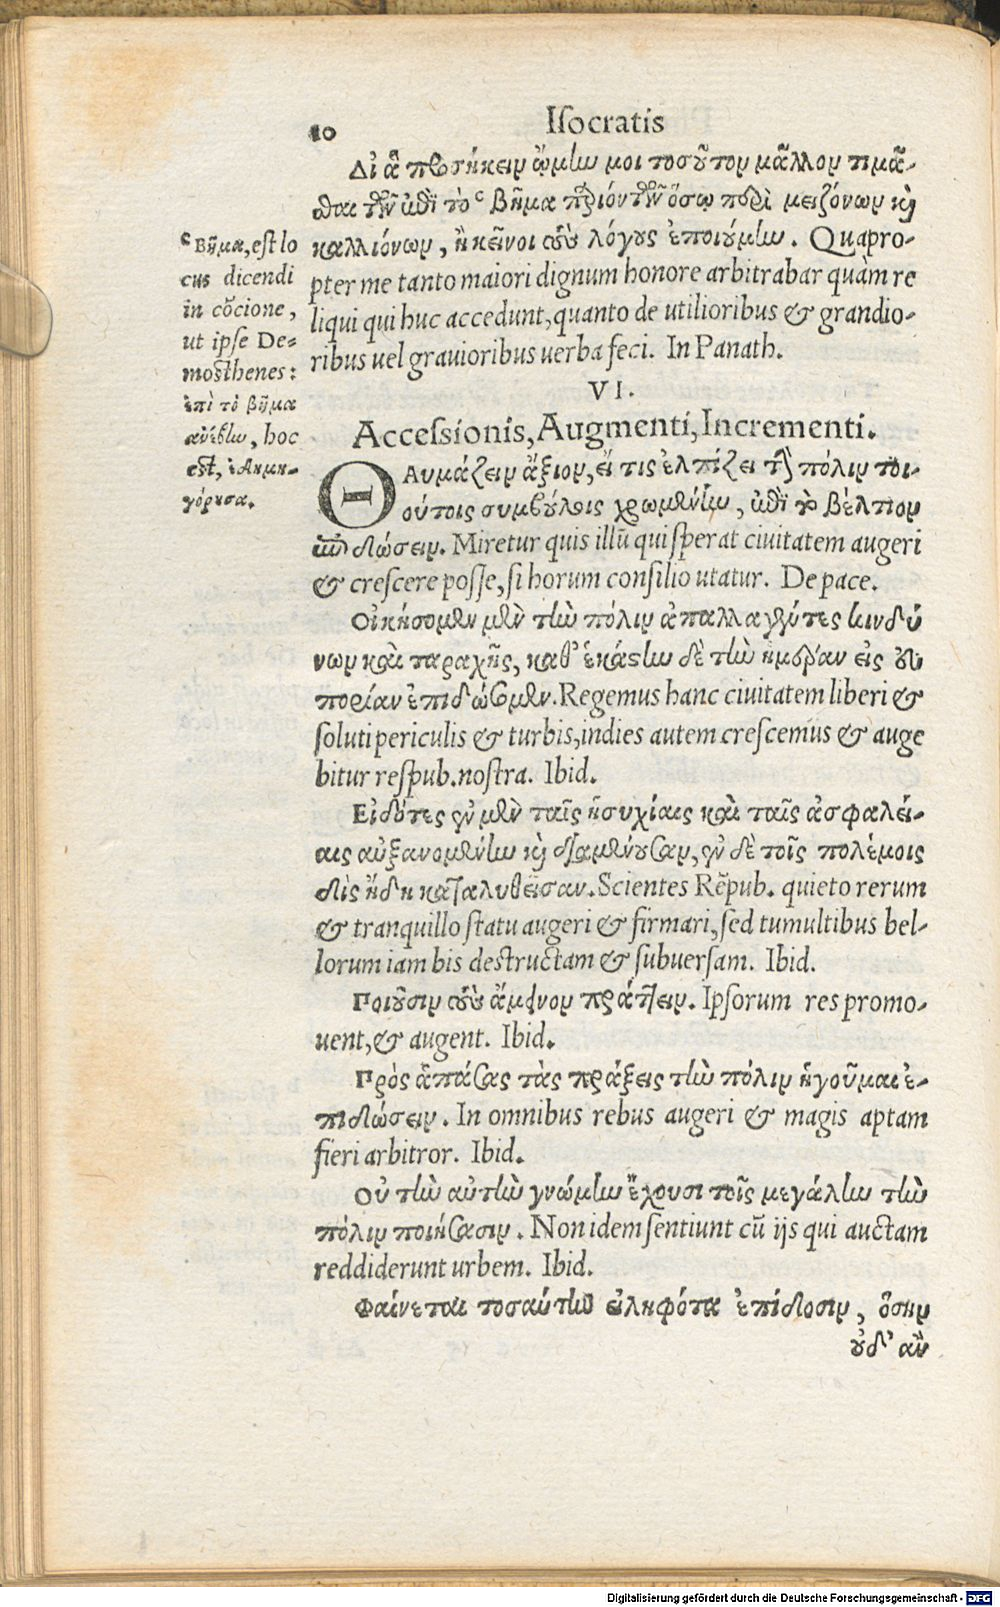 10
Isocratis
Δι' ἃ προσήκειν ᾤμην μοι τοσοῦτον μᾶλλον τιμᾶ-
σθαι τῶν ἐπὶ τὸ ᶜ βῆμα παριόντων ὅσῳ περὶ μειζόνων καὶ
καλλιόνων, ἢ κεῖνοι τοὺς λόγους ἐποιούμην. Quapro-
pter me tanto maiori dignum honore arbitrabar quàm re
liqui qui huc accedunt, quanto de utilioribus & grandio-
ribus uel grauioribus uerba feci. In Panath.
ᶜ Βῆμα, est lo
cus dicendi
in cōcione,
ut ipse De-
mosthenes:
ἐπὶ τὸ βῆμα
ἀνέβην, hoc
est, ἐδημη-
γόρησα.
VI.
Accessionis, Augmenti, Incrementi.
ΘΑυμάζειν ἄξιον, εἴ τις ἐλπίζει τὴν πόλιν τοι-
ούτοις συμβούλοις χρωμένην, ἐπὶ τὸ βέλτιον
ἐπιδώσειν. Miretur quis illū qui sperat ciuitatem augeri
& crescere posse, si horum consilio utatur. De pace.
Οἰκήσομεν μὲν τὴν πόλιν ἀπαλλαγέντες κινδύ
νων καὶ ταραχῆς, καθ' ἑκάστην δὲ τὴν ἡμέραν εἰς εὐ
πορίαν ἐπιδώσομεν. Regemus hanc ciuitatem liberi &
soluti periculis & turbis, indies autem crescemus & auge
bitur respub. nostra. Ibid.
Εἰδότες ἐν μὲν ταῖς ἡσυχίαις καὶ ταῖς ἀσφαλεί-
αις αὐξανομένην καὶ διαμένουσαν, ἐν δὲ τοῖς πολέμοις
δὶς ἤδη καταλυθεῖσαν. Scientes Rēpub. quieto rerum
& tranquillo statu augeri & firmari, sed tumultibus bel-
lorum iam bis destructam & subuersam. Ibid.
Ποιοῦσιν τοὺς ἄμεινον πράττειν. Ipsorum res promo-
uent, & augent. Ibid.
Πρὸς ἁπάσας τὰς πράξεις τὴν πόλιν ἡγοῦμαι ἐ-
πιδώσειν. In omnibus rebus augeri & magis aptam
fieri arbitror. Ibid.
Οὐ τὴν αὐτὴν γνώμην ἔχουσι τοῖς μεγάλην τὴν
πόλιν ποιήσασιν. Non idem sentiunt cū ijs qui auctam
reddiderunt urbem. Ibid.
Φαίνεται τοσαύτην εἰληφότα ἐπίδοσιν, ὅσην
οὐδ' ἂν
Digitalisierung gefördert durch die Deutsche Forschungsgemeinschaft - DFG